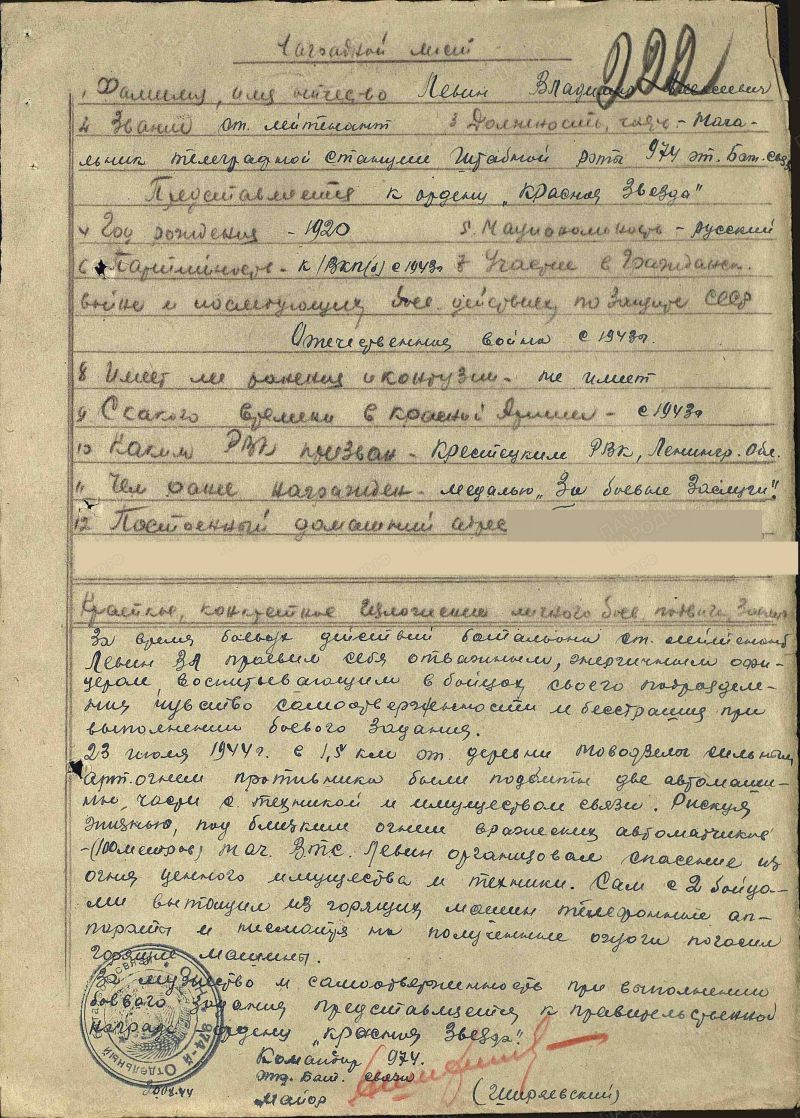 222
Наградной лист
1 Фамилия, имя отчество Левин Владимир Алексеевич
2 Звание ст. лейтенант 3 Должность, часть - Нача-
льник телеграфной станции Штабной роты 974 от. Бат. связи
Представляется к ордену „Красная Звезда"
4 Год рождения - 1920 5. Национальность - русский
6 Партийность - к/ВКП(б) с 1943г 7 Участие в Гражданск.
войне и последующих боев. действиях по защите СССР
Отечественная война с 1943г.
8 Имеет ли ранения и контузии - не имеет
9 С какого времени в Красной Армии - с 1943г
10 Каким РВК призван - Крестецким РВК, Ленингр. Обл.
11 Чем ранее награжден - медалью „За боевые Заслуги".
12 Постоянный домашний адрес
Краткое, конкретное изложение личного боев. подвига,
За время боевых действий батальона ст. лейтенант
Левин ВА проявил себя отважным, энергичным офи-
цером, воспитывающим в бойцах своего подразделе-
ния чувство самоотверженности и бесстрашия при
выполнении боевого задания.
23 июля 1944г. в 1,5 км от деревни сильным
арт. огнем противника были подбиты две автомаши-
ны, части с техникой и имуществом связи. Рискуя
жизнью, под близким огнем вражеских автоматчиков
-(100 метров) нач. ВТС. Левин организовал спасение из
огня ценного имущества и техники. Сам с 2 бойца-
ми вытащил из горящих машин телефонные ап-
параты и несмотря на полученные ожоги погасил
горящие машины.
За мужество и самоотверженность при выполнении
боевого задания представляется к правительственной
награде ордену „Красная Звезда".
Командир 974.
отд. Бат. связи
Майор (Ширяевский)
974-й Отдельный